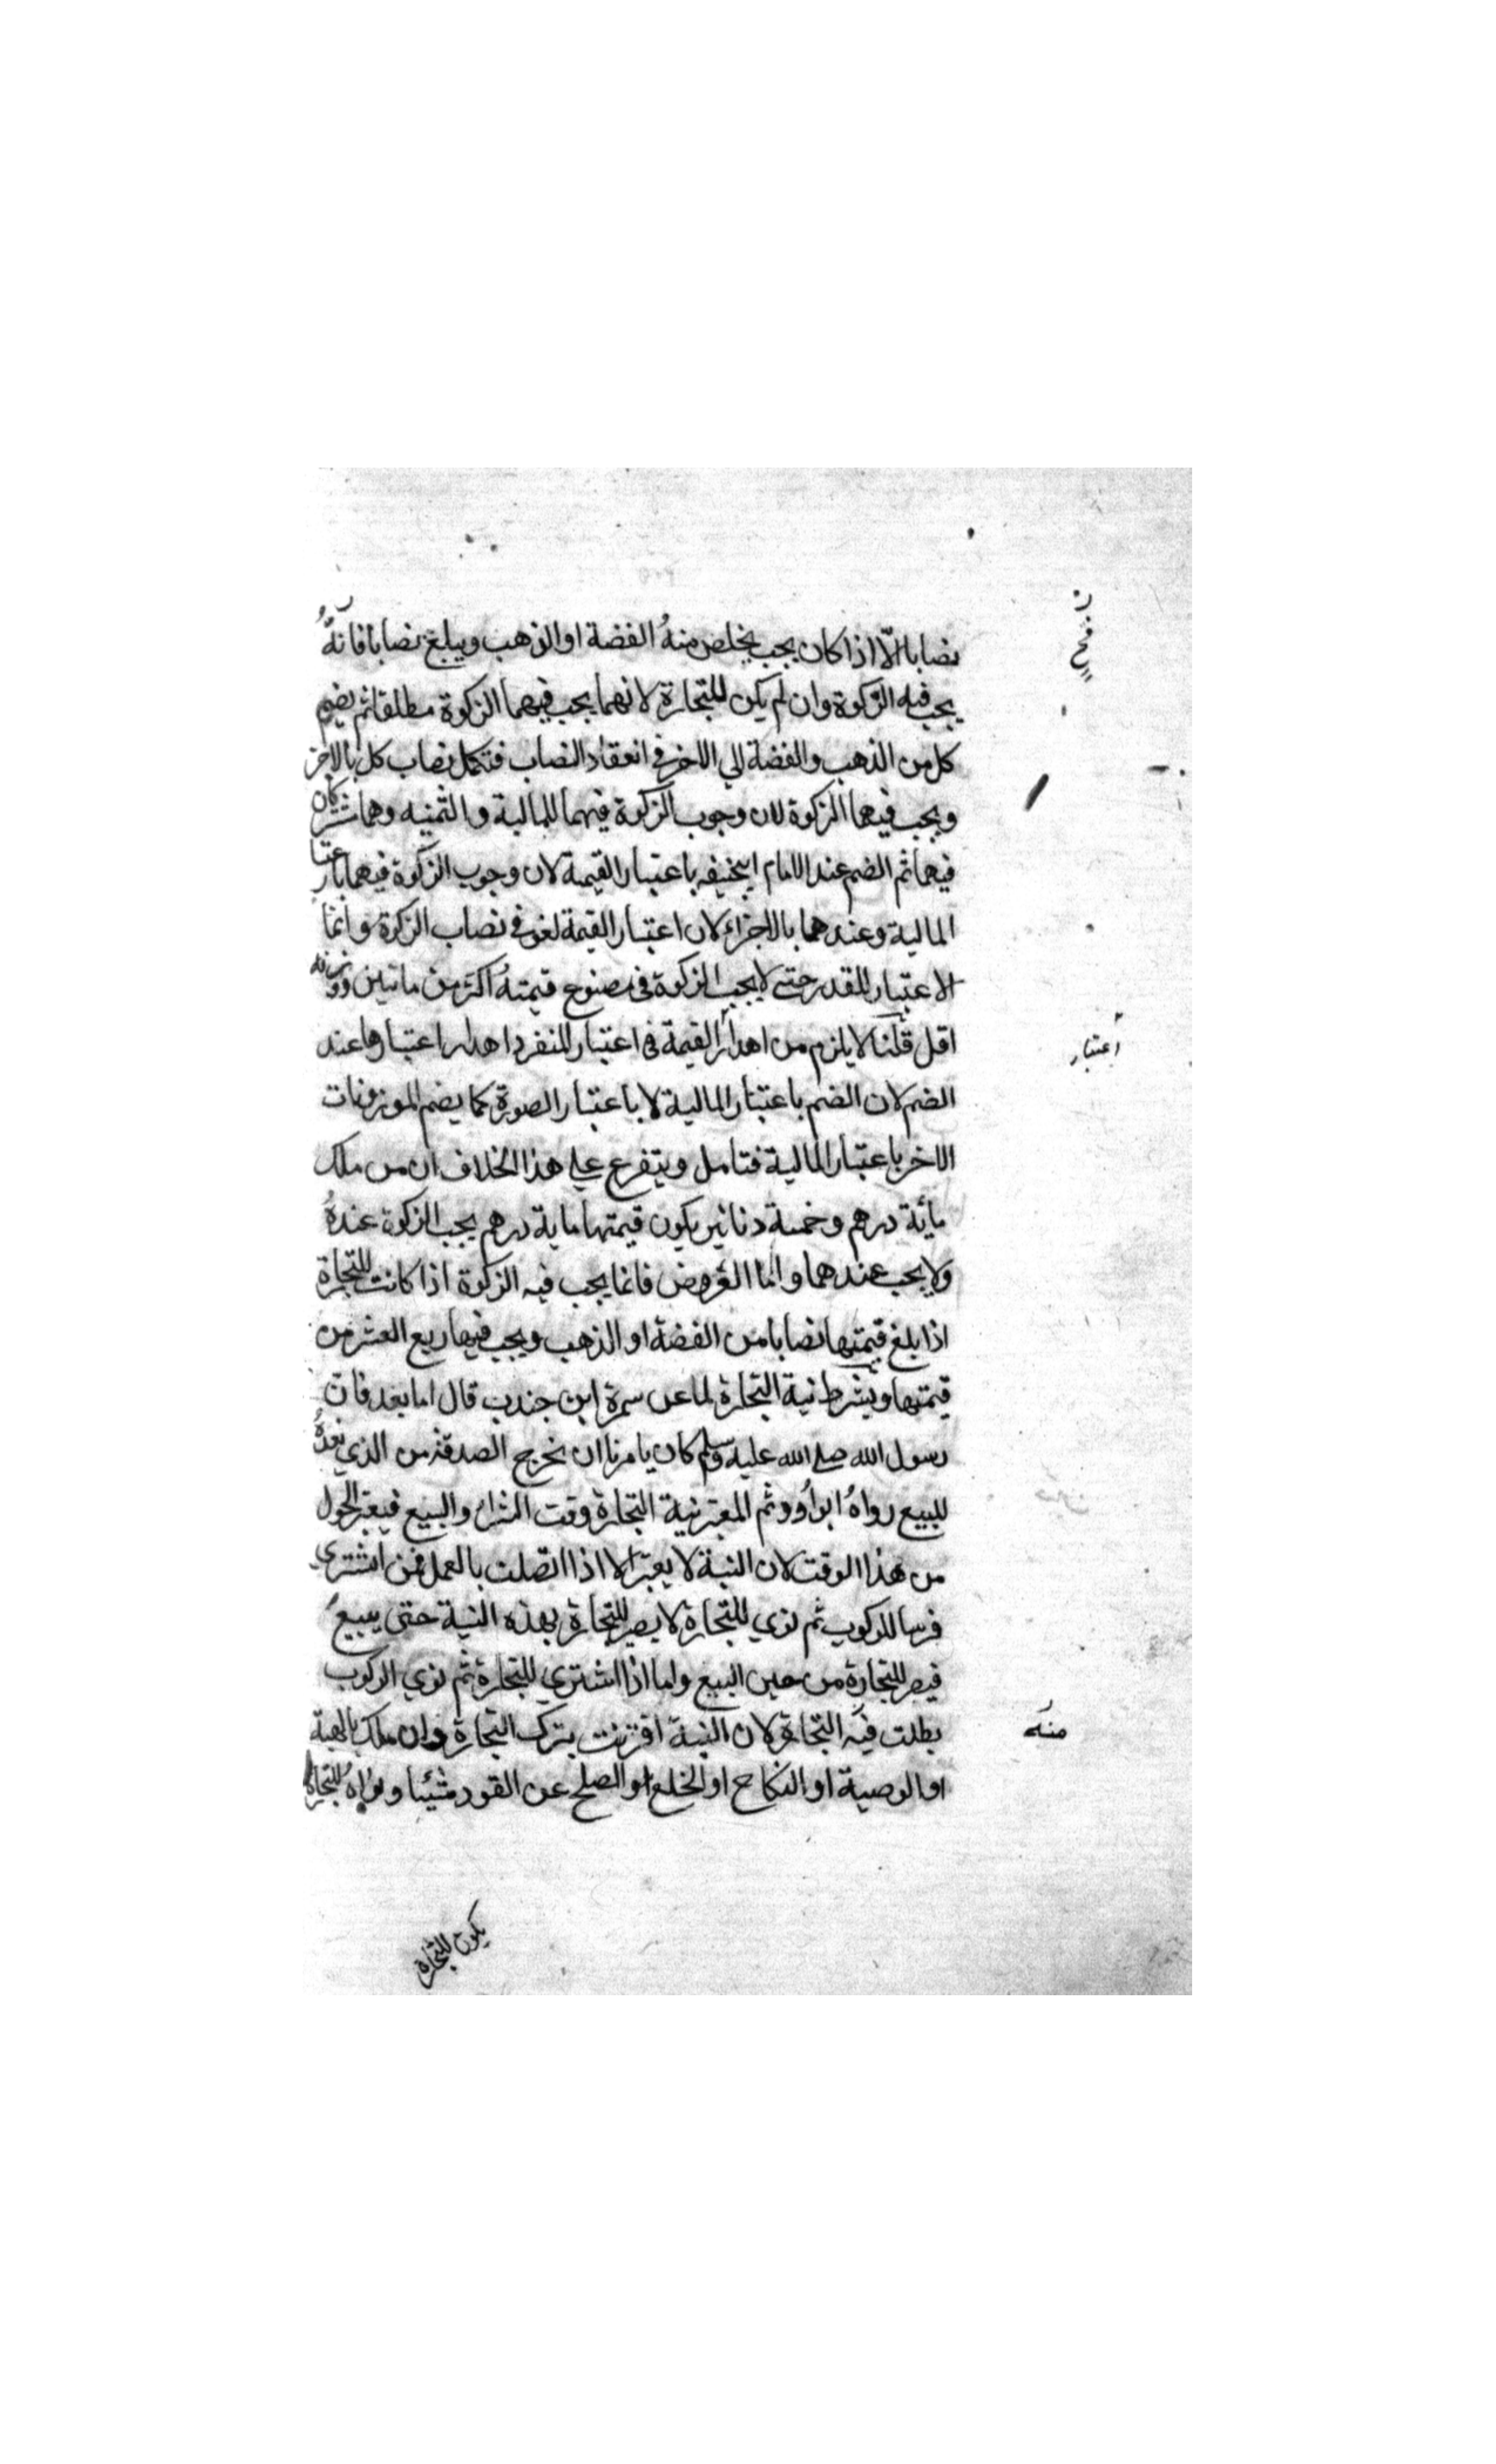 نصابا الّا اذا كان يجب يخلص منهُ الفضة او الذهب ويبلغ نصابا فانّهُ
يجب فيه الزكوة وان لم يكن للتجارة لانهما يجب فيهما الزكوة مطلقا ثم يضم
كل من الذهب والفضة الي الاخر في انعقاد النصاب فتكمل نصاب كل بالاخر
ويجب فيهما الزكوة لان وجوب الزكوة فيهما للمالية والثمنيه وهما مشتركان
فيهما ثم الضم عند الامام ابيحنيفه باعتبار القيمة لان وجوب الزكوة فيهما باعتبار
المالية وعندهما بالاجزاء لان اعتبار القيمة لغو في نصاب الزكوة وانما
الاعتبار للقدر حتي لا يجب الزكوة في مصنوع قيمتهُ اكثر من مائتين ووزنه
اقل قلنا لا يلزم من اهدار القيمة في اعتبار المنفرد اهدار اعتبارها عند
الضم لان الضم باعتبار المالية لا باعتبار الصورة كما يضم الموزونات
الاخر باعتبار المالية فتامل ويتفرع علي هذا الخلاف ان من ملك
مائة درهم وخمسة دنانير يكون قيمتها ماية درهم يجب الزكوة عندهُ
ولا يجب عندهما واما العروض فانما يجب فيه الزكوة اذا كانت للتجارة
اذا بلغ قيمتها نصابا من الفضة او الذهب ويجب فيها ربع العشر من
قيمتها ويشرط نية التجارة لما عن سمرة ابن جندب قال اما بعد فان
رسول الله صلي الله عليه وسلم كان يامرنا ان نخرج الصدقة من الذي نعدهُ
للبيع رواهُ ابو داوود ثم المعتبر نية التجارة وقت الشراء والبيع فيعتبر الحول
من هذا الوقت لان النية لا يعتبر الا اذا اتصلت بالعمل فمن اشتري
فرسا للركوب ثم نوي للتجارة لا يصير للتجارة بهذه النية حتي يبيع
فيصير للتجارة من حين البيع واما اذا اشتري للتجارة ثم نوي الركوب
بطلت فيه التجارة لان النية اقترنت بترك التجارة وان ملك بالهبة
او الوصية او النكاح او الخلع او الصلح عن القود شيئا ونواهُ للتجارة
يكون للتجارة
اعتبار
منه